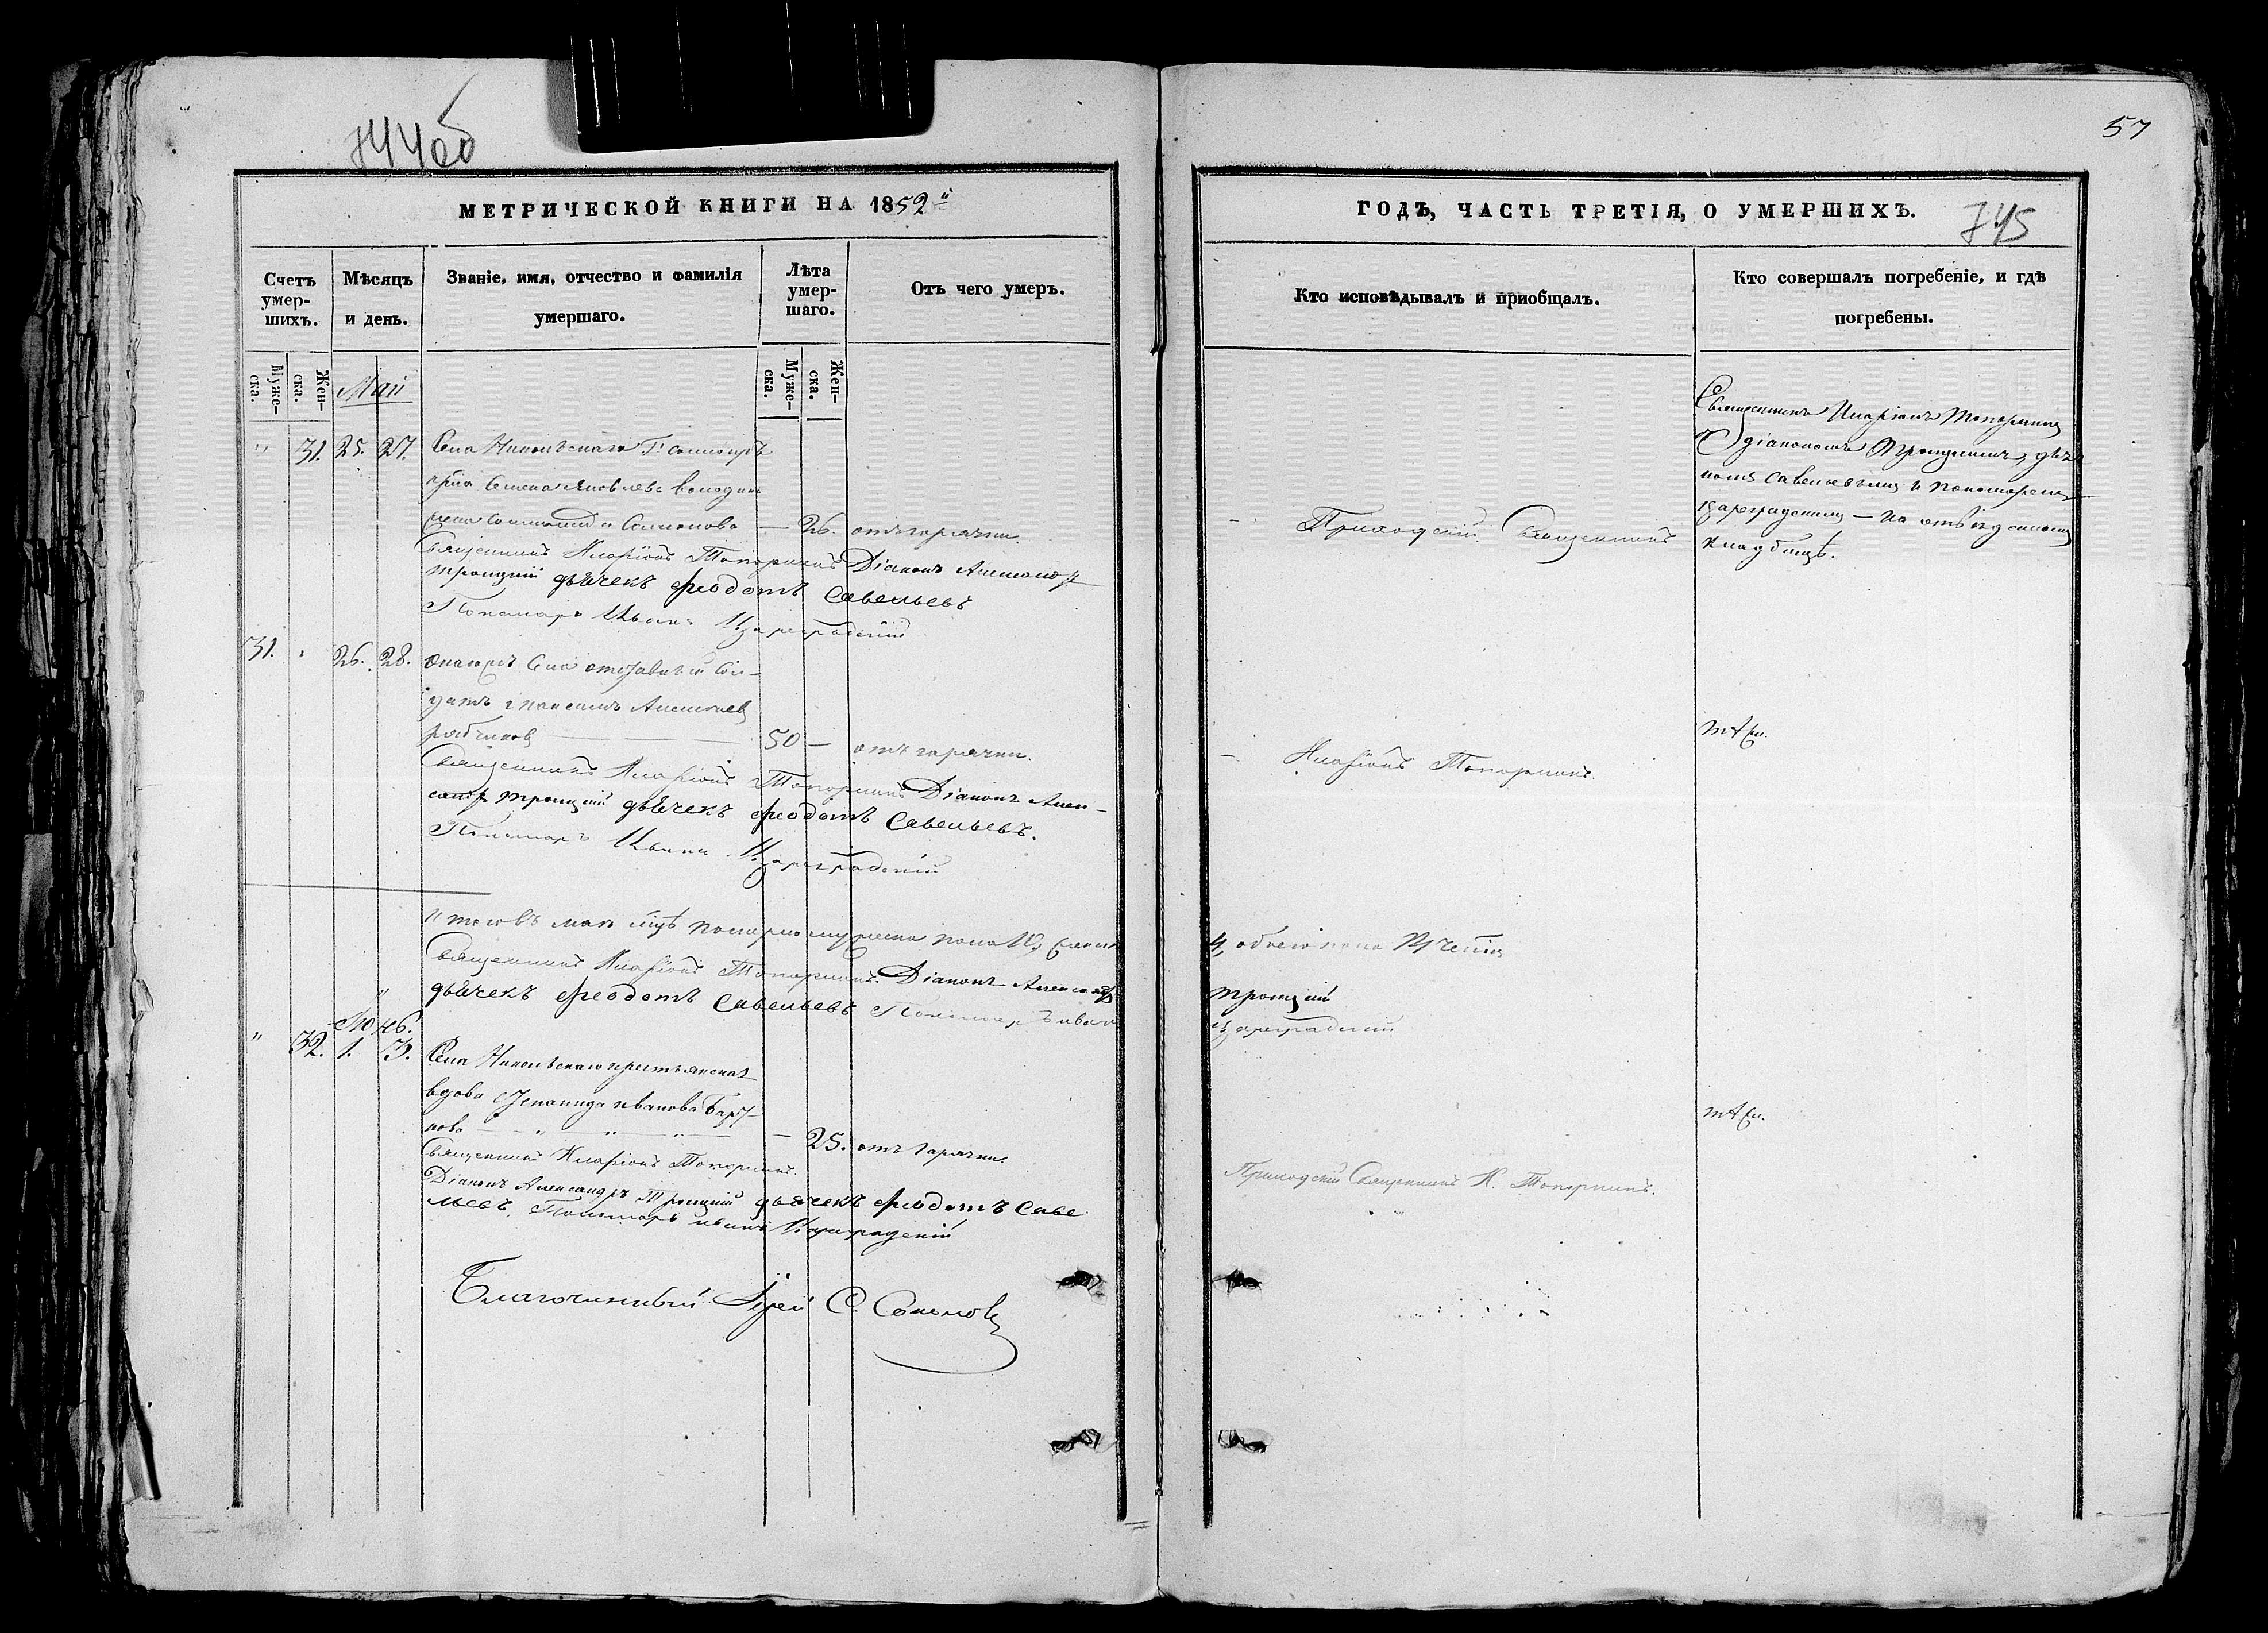 744об
57
МЕТРИЧЕСКОЙ КНИГИ НА 1852й
ГОДЪ, ЧАСТЬ ТРЕТІЯ, О УМЕРШИХЪ.
745
Счетъ умер-шихъ.
Мѣсяцъ и день.
Званіе, имя, отчество и фамилія умершаго.
Лѣта умер-шаго.
Отъ чего умеръ.
Кто исповѣдывалъ и приобщалъ.
Кто совершалъ погребеніе, и гдѣ погребены.
Муже-ска.
Жен-ска.
Муже-ска.
Жен-ска.
Май
" 31. 25. 27. Села Никольскаго Г.
Семена Яковлева
жена Семенова — 26. отъ горячки.
Священникъ Иларіонъ Топорнинъ Діаконъ Александр
Троицкій дьячекъ Феодотъ Савельевъ
Пономарь Иванъ Цареградскій
Приходскій Священникъ
Священникъ Иларіонъ Топорнинъ
съ діакономъ Троицкимъ, дьяч
комъ Савельевымъ и Пономаремъ
Цареградскимъ — на отведенномъ
кладбищѣ.
31. " 26. 28. Онагожъ села отставный Сол-
датъ Алексѣевъ
50 — отъ горячки.
Священникъ Иларіонъ Топорнинъ Діаконъ Алек-
сандр Троицкій дьячекъ Феодотъ Савельевъ.
Пономарь Иванъ Цареградскій
Иларіонъ Топорнинъ.
тѣже.
Итого въ маѣ мцѣ померло мужеска пола 10, женска
4, обоего пола 14 четы
Священникъ Иларіонъ Топорнинъ. Діаконъ Александръ
Троицкій
дьячекъ Феодотъ Савельевъ Пономарь Иванъ
Цареградскій
" 32. 1. 3. Села Никольскаго крестьянская
вдова Иванова
нова — 25. отъ горячки.
Священникъ Иларіонъ Топорнинъ.
Діаконъ Александръ Троицкій дьячекъ Феодотъ Саве
льевъ. Пономарь Иванъ Цареградскій
Приходскій Священникъ И. Топорнинъ.
тѣже.
Благочинный Іерей С. Соколовъ